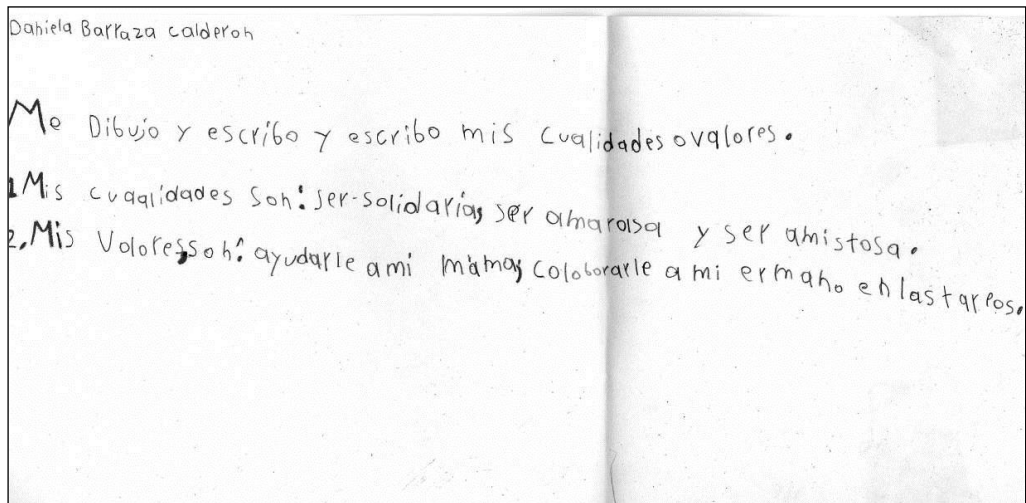 Daniela Barraza calderon
Me Dibujo y escribo y escribo mis cualidades o valores.
1 Mis cuaalidades son: ser-solidaria, ser amarosa y ser amistosa.
2. Mis Valores son: ayudarle a mi mama, coloborarle a mi ermano en las tareas.